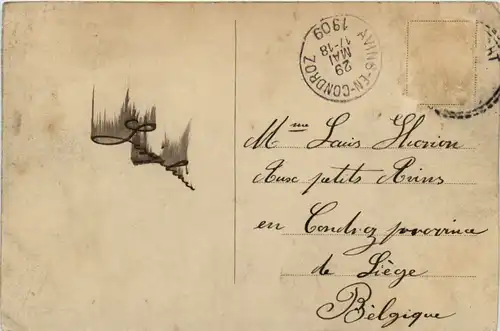 AVINS-EN-CONDROZ
29
MAI
17-18
1909
Mme Louis
Aux petits Avins
en Condroz province
de Liège
Belgique